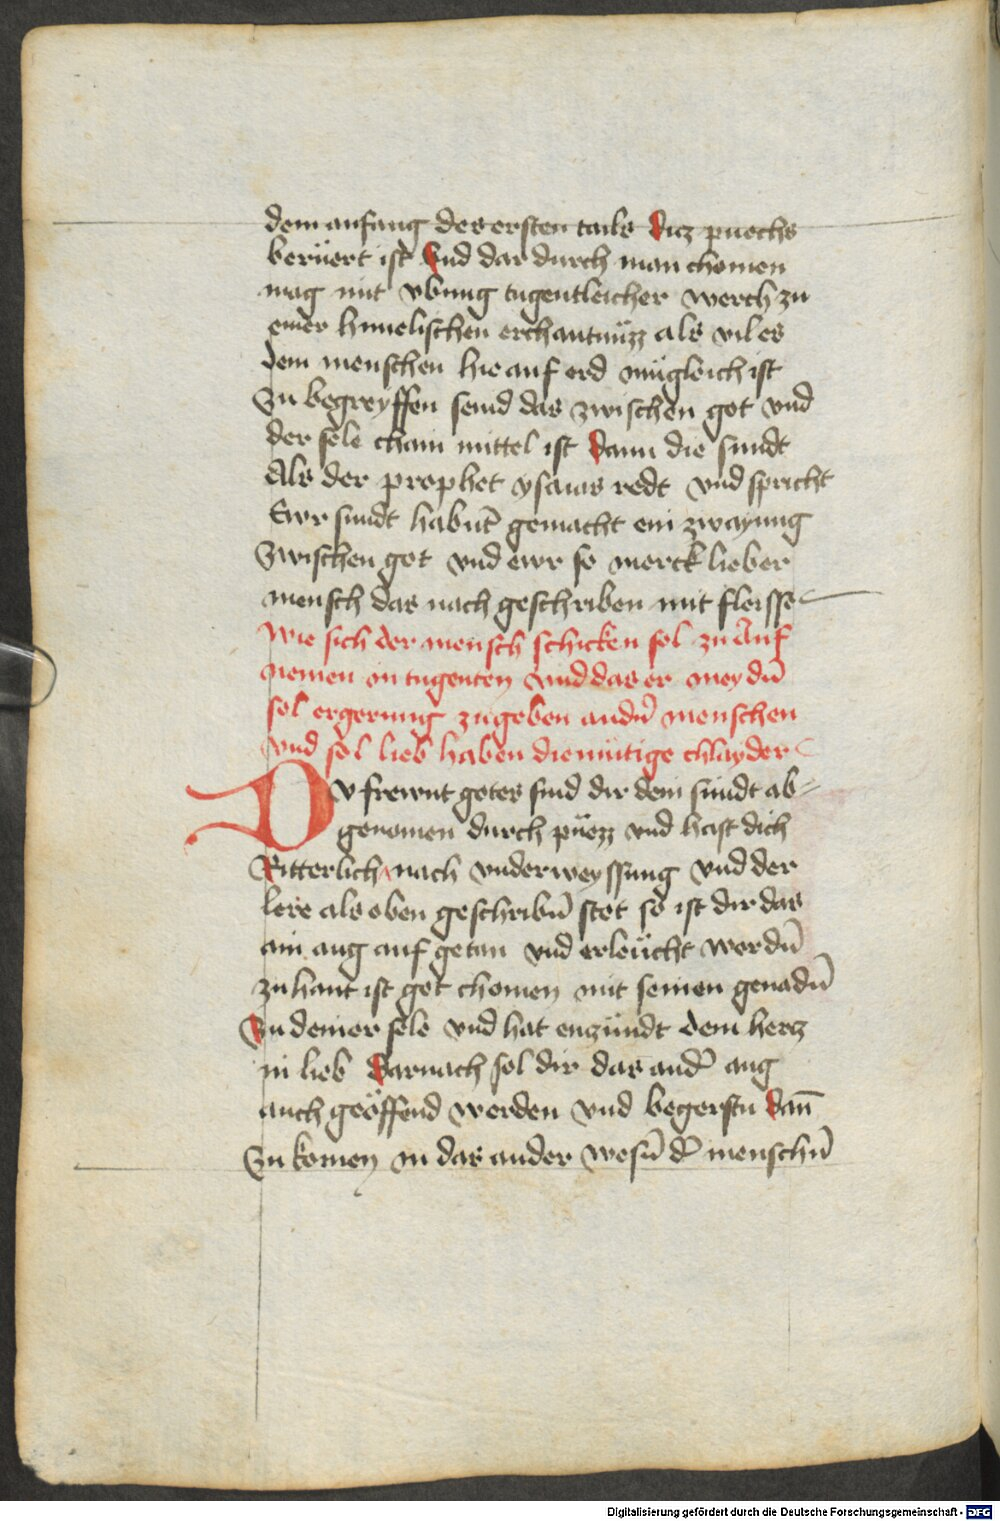 dem anfang des ersten tails dicz puechs
berüert ist Vnd dar durch man chomen
mag mit vbung tugentleicher werch zu
einer himelischen erchantnüzz als vil es
dem menschen hie auf erd mügleich ist
Zu begreyffen seind das zwischen got vnd
der sele chain mittel ist dann die sundt
Als der prophet ysaias redt vnd spricht
Ewr sundt habnt̄ gemacht ein zwayung
Zwischen got vnd ewr so merck lieber
mensch das nach geschriben mit fleisse
Wie sich der mensch schicken sol zu Auf
nemen in tugenten vnd das er meydn̄
sol ergerung zu geben andn̄ menschen
Vnd sol lieb haben diemütige chlayder
DV frewnt gotes sind dir dein sündt ab⸗
genomen durch püezz vnd hast dich
Ritterlich nach vnderweyssung vnd der
lere als oben geschribn̄ stet so ist dir das
ain aug auf getan vnd erleücht wordn̄
zu hant ist got chomen mit seinen genadn̄
Zu deiner sele vnd hat enzündt dein hercz
in lieb Darnach sol dir das and̄ aug
auch geöffend werden vnd begerstu dan̄
Zu komen in das ander wesn̄ d̄ menschn̄
Digitalisierung gefördert durch die Deutsche Forschungsgemeinschaft - DFG